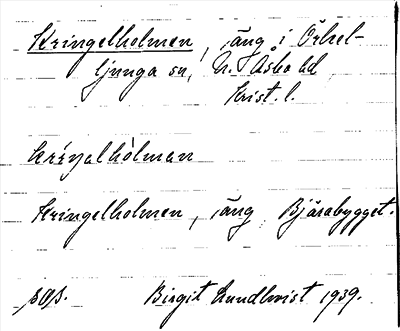 Kringelholmen, äng i Örkel-
ljunga sn, N. Åsbo hd
Krist. l.
Kringelholmen, äng, Bjärabygget.
Birgit Lundkvist 1939.